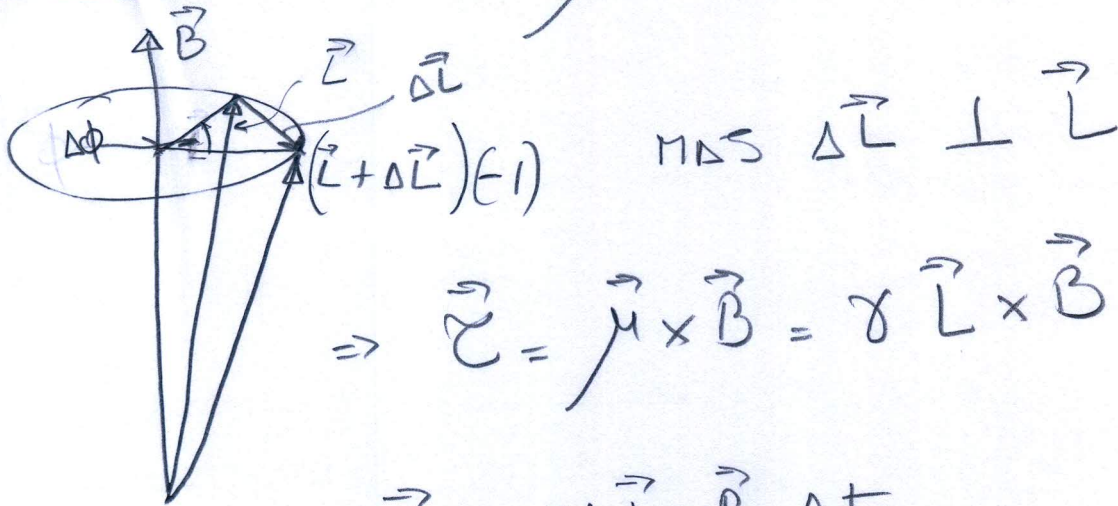 B⃗
L⃗ ΔL⃗
Δϕ (L⃗ + ΔL⃗)(-1) MAS ΔL⃗ ⊥ L⃗
⇒ τ⃗ = μ⃗ × B⃗ = γ L⃗ × B⃗